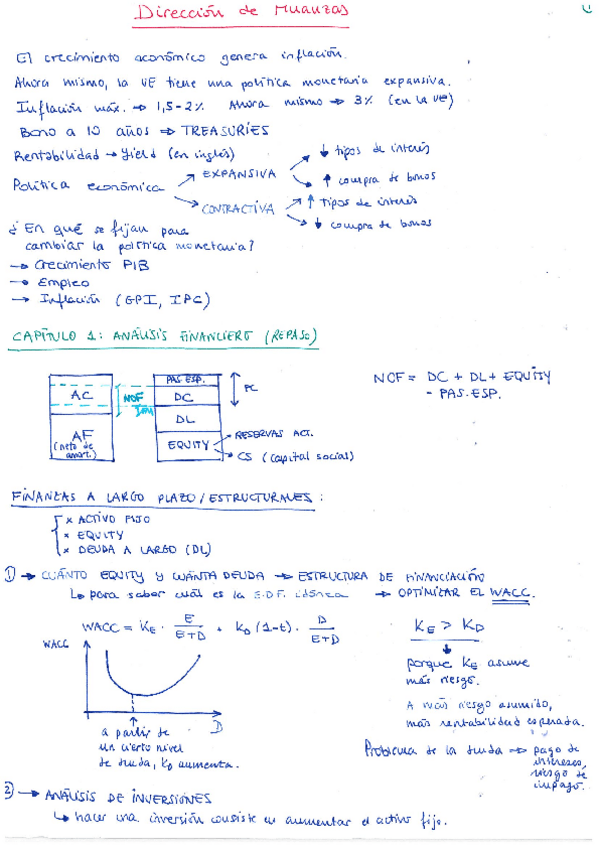 Dirección de Finanzas
El crecimiento económico genera inflación.
Ahora mismo, la UE tiene una política monetaria expansiva.
Inflación máx. → 1,5-2% Ahora mismo → 3% (en la UE)
Bono a 10 años ⇒ TREASURIES
Rentabilidad → Yield (en inglés)
Política económica → EXPANSIVA → ↓ tipos de interés
↑ compra de bonos
→ CONTRACTIVA → ↑ tipos de interés
↓ compra de bonos
¿En qué se fijan para
cambiar la política monetaria?
→ Crecimiento PIB
→ Empleo
→ Inflación (GPI, IPC)
CAPÍTULO 1: ANÁLISIS FINANCIERO (REPASO)
AC
AF
(neto de
amort.)
NOF
PAS. ESP.
DC
DL
EQUITY
PC
→ RESERVAS ACT.
→ CS (capital social)
NOF = DC + DL + EQUITY
- PAS. ESP.
FINANZAS A LARGO PLAZO / ESTRUCTURALES:
× ACTIVO FIJO
× EQUITY
× DEUDA A LARGO (DL)
1) → CUÁNTO EQUITY Y CUÁNTA DEUDA → ESTRUCTURA DE FINANCIACIÓN
↳ para saber cuál es la E.D.F. idónea → OPTIMIZAR EL WACC.
WACC = KE · E/E+D + KD (1-t) · D/E+D
KE > KD
WACC
D
a partir de
un cierto nivel
de deuda, KD aumenta.
porque KE asume
más riesgo.
A más riesgo asumido,
más rentabilidad esperada.
Problema de la deuda → pago de
intereses,
riesgo de
impago.
2) → ANÁLISIS DE INVERSIONES
↳ hacer una inversión consiste en aumentar el activo fijo.